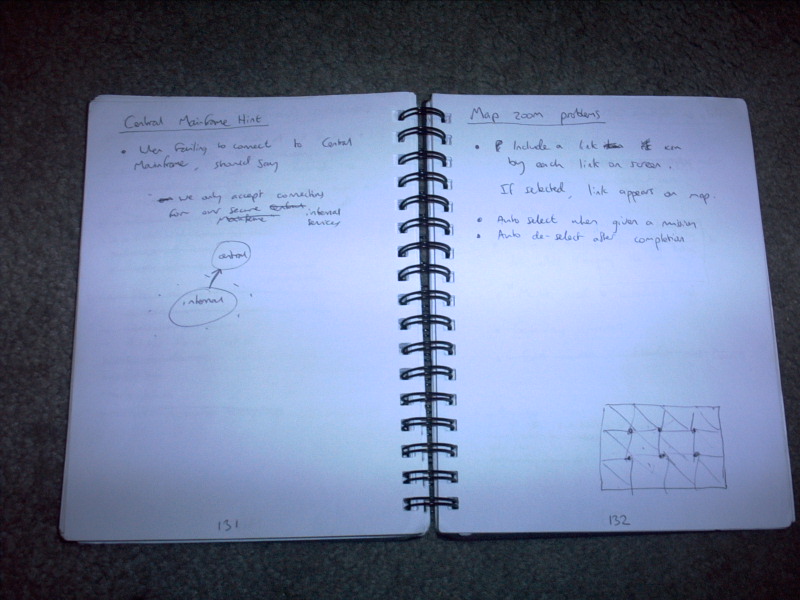 Central Mainframe Hint
• When failing to connect to Central
Mainframe, should say
we only accept connections
from our secure central internal
Mainframe services
central
internal
131
Map zoom problems
• Include a
by each link on screen.
If selected, link appears on map.
• Auto select when given a mission
• Auto de-select after completion
132